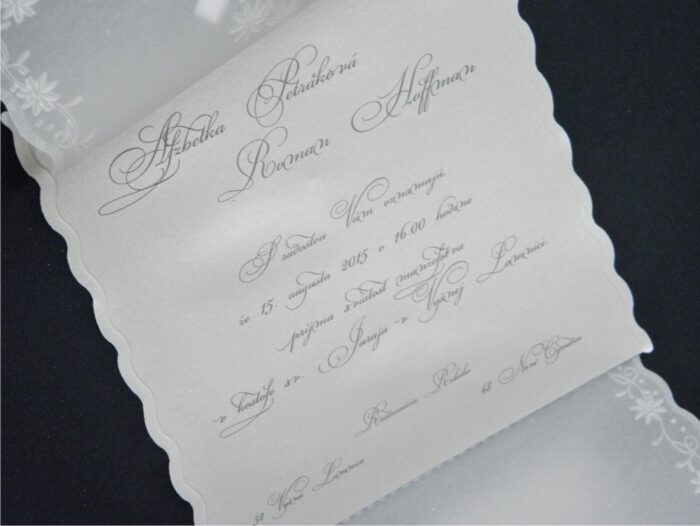 Alžbetka Petráková
Roman Hoffman
S radosťou Vám oznamujú,
že 15. augusta 2015 o 16.00 hodine
prijmu sviatosť manželstva
v kostole sv. Juraja v Vyšnej Lomnici.
32 Vyšná Lomnica
63